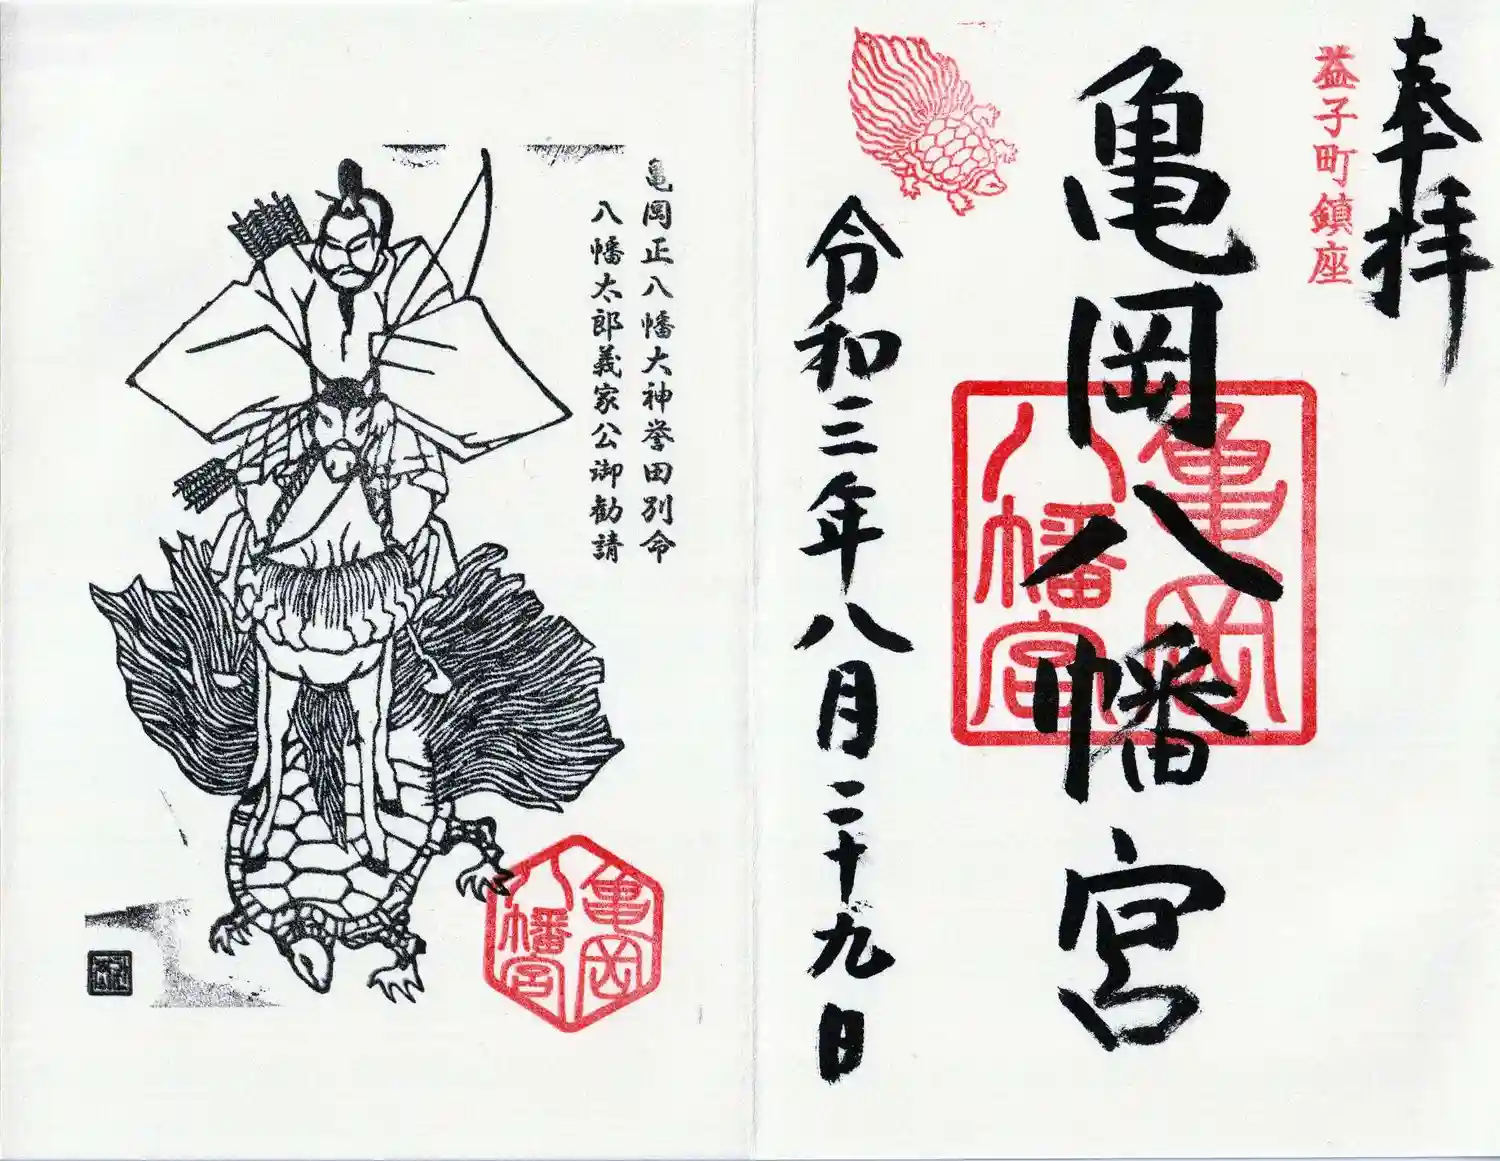 奉拝
益子町鎮座
亀岡八幡宮
亀岡
八幡宮
令和三年八月二十九日
亀岡正八幡大神誉田別命
八幡太郎義家公御勧請
亀岡
八幡宮